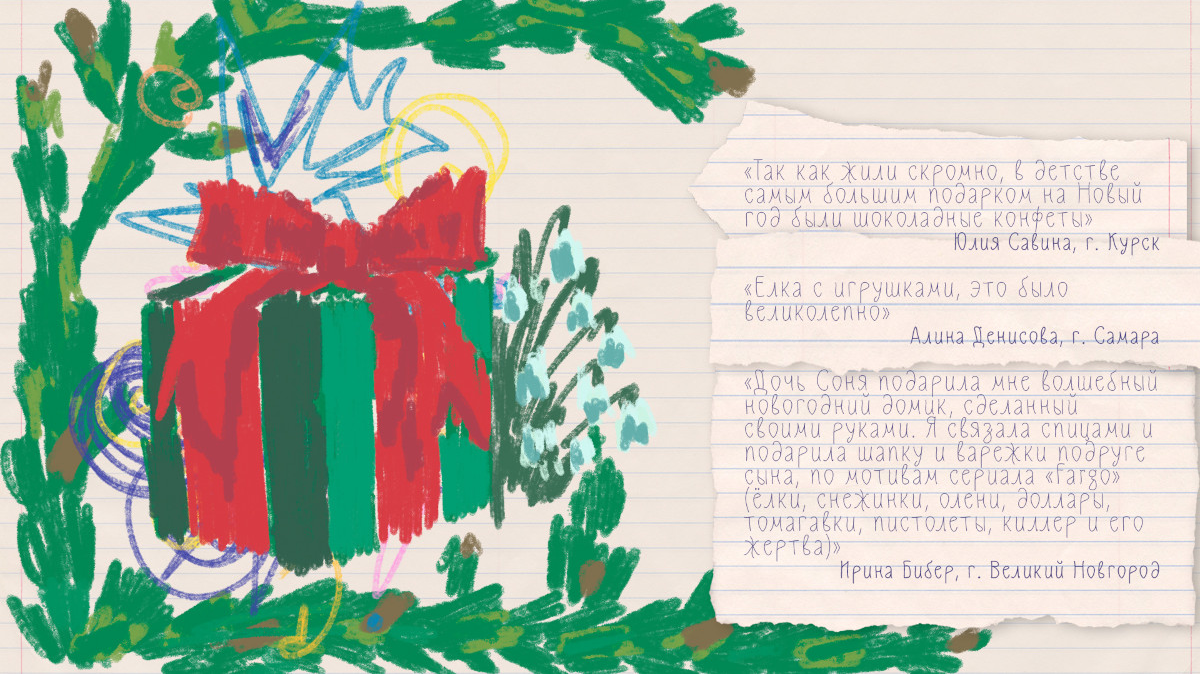 «Так как жили скромно, в детстве
самым большим подарком на Новый
год были шоколадные конфеты»
Юлия Савина, г. Курск
«Елка с игрушками, это было
великолепно»
Алина Денисова, г. Самара
«Дочь Соня подарила мне волшебный
новогодний домик, сделанный
своими руками. Я связала спицами и
подарила шапку и варежки подруге
сына, по мотивам сериала «Fargo»
(ёлки, снежинки, олени, доллары,
томагавки, пистолеты, киллер и его
жертва)»
Ирина Бибер, г. Великий Новгород